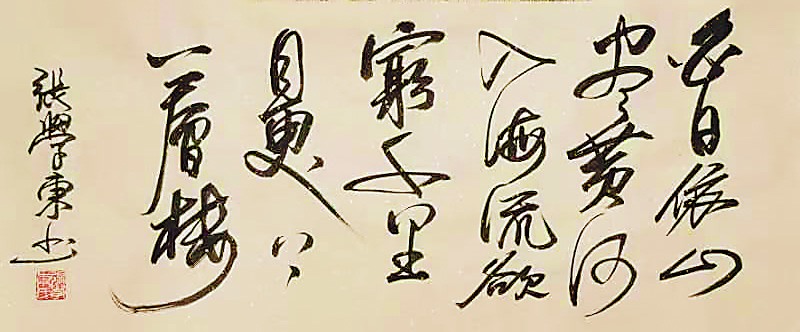 白日依山
尽黄河
入海流欲
窮千里
目更上
一層樓
張學東书